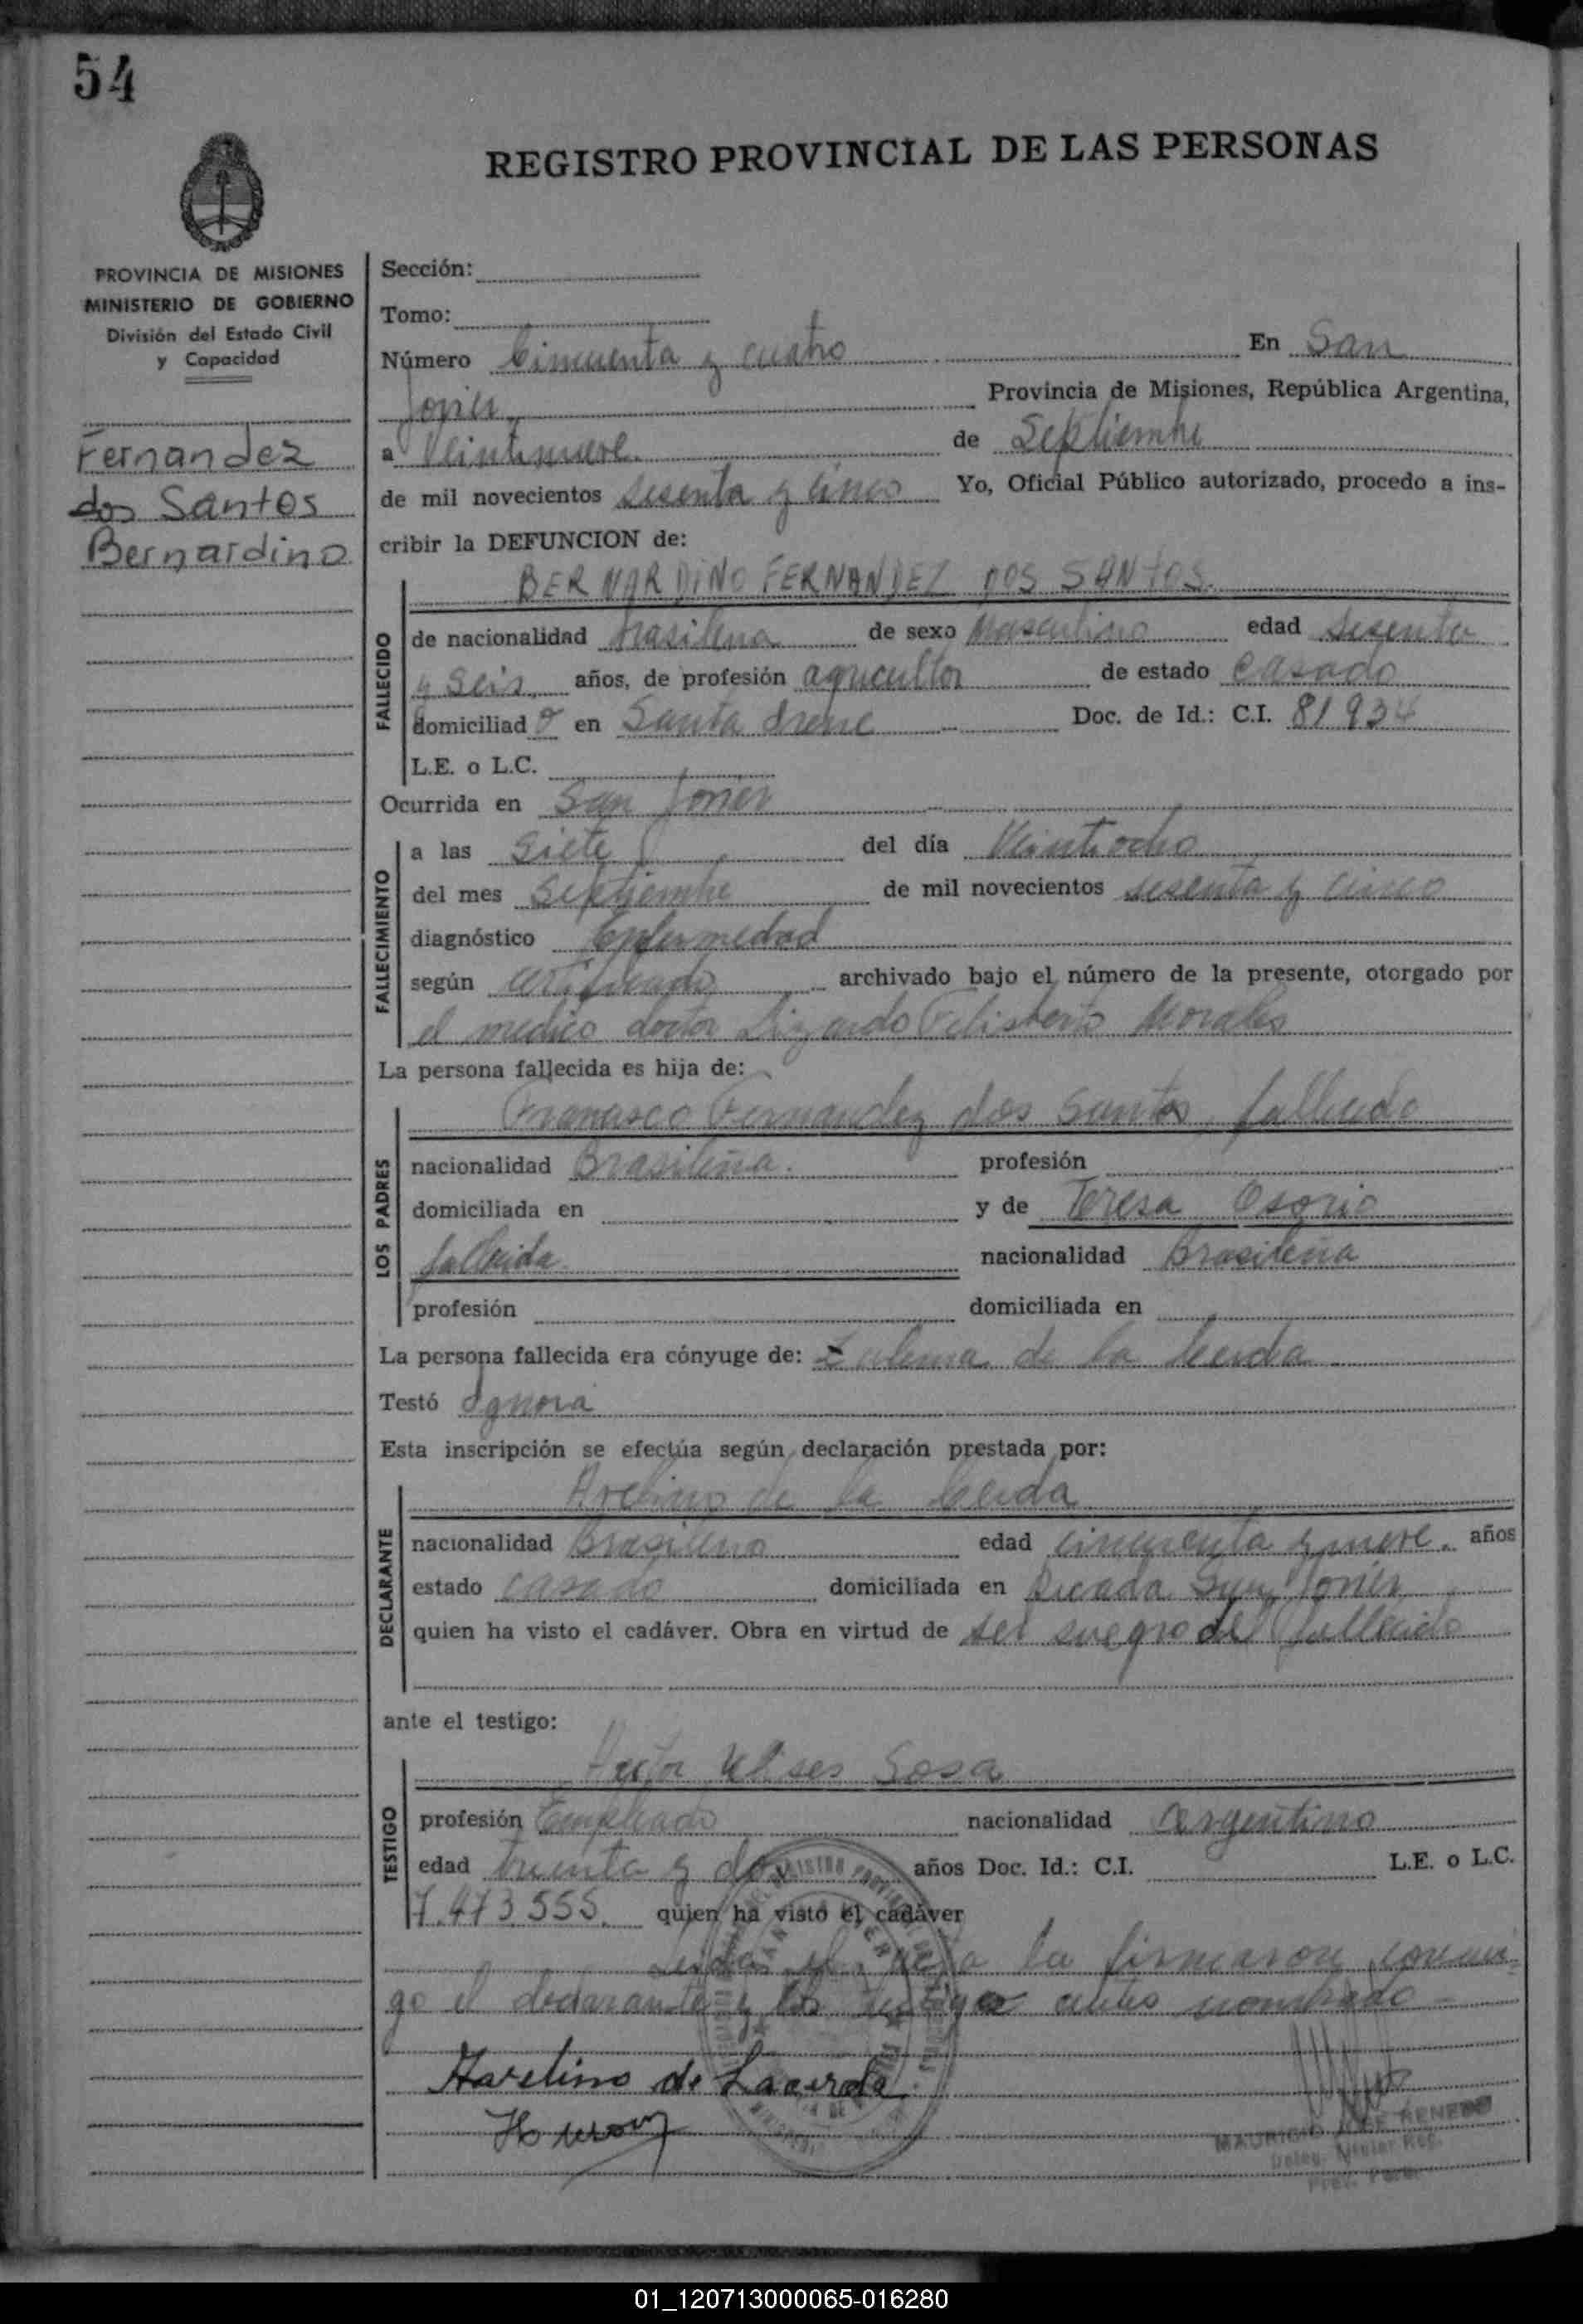 54
REGISTRO PROVINCIAL DE LAS PERSONAS
PROVINCIA DE MISIONES
MINISTERIO DE GOBIERNO
División del Estado Civil
y Capacidad
Fernandez
dos Santos
Bernardino
Sección:
Tomo:
Número Cincuenta y cuatro En San
Javier Provincia de Misiones, República Argentina,
a Veintinueve de Septiembre
de mil novecientos sesenta y cinco Yo, Oficial Público autorizado, procedo a ins-
cribir la DEFUNCION de:
FALLECIDO
BERNARDINO FERNANDEZ DOS SANTOS.
de nacionalidad brasilena de sexo Masculino edad sesenta
y seis años, de profesión agricultor de estado casado
domiciliado en Santa Irene Doc. de Id.: C.I. 81934
L.E. o L.C.
Ocurrida en San Javier
FALLECIMIENTO
a las siete del día Veintiocho
del mes Septiembre de mil novecientos sesenta y cinco
diagnóstico Enfermedad
según certificado archivado bajo el número de la presente, otorgado por
el medico doctor Lizardo Filisberto Morales
La persona fallecida es hija de:
LOS PADRES
Fernandez dos Santos, fallecido
nacionalidad Brasileña. profesión
domiciliada en y de Teresa Osorio
fallecida. nacionalidad Brasileña
profesión domiciliada en
La persona fallecida era cónyuge de: Zulema de la Cerda
Testó Ignora
Esta inscripción se efectúa según declaración prestada por:
DECLARANTE
Avelino de la Cerda
nacionalidad Brasileno edad cincuenta y nueve. años
estado casado domiciliada en Picada San Javier
quien ha visto el cadáver. Obra en virtud de ser suegro del fallecido
ante el testigo:
TESTIGO
Hector Ulises Sosa
profesión Empleado nacionalidad argentino
edad treinta y dos años Doc. Id.: C.I. L.E. o L.C.
7.473.555. quien ha visto el cadáver
Leida el acta la firmaron conmi-
go el declarante y el testigo antes nombrado -
Avelino de Lacerda
MAURICIO JOSE